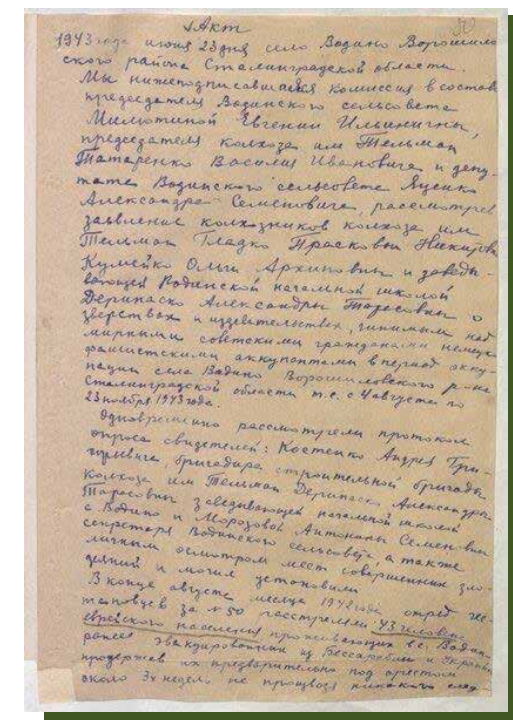 Акт
1943 года июня 23 дня село Водино Ворошилов
ского района Сталинградской области.
Мы нижеподписавшаяся комиссия в составе
председателя Водинского сельсовета
Милютиной Евгении Ильиничны,
председателя колхоза им Тельман
Татаренко Василия Ивановича и депу-
тата Водинского сельсовета Яценко
Александра Семеновича, рассмотрев
заявление колхозников колхоза им
Тельман Гладко Прасковьи Никифоров
Кумейко Ольги Архиповны и заведы-
вающей Водинской начальной школой
Дерипаско Александры Тарасовны о
зверствах и издевательствах, чинимым над
мирными советскими гражданами немецко
фашистскими оккупантами в период окку-
пации села Водино Ворошиловского р-на
Сталинградской области т.е. с 4 августа по
23 ноября 1943 года.
Одновременно рассмотрели протокол
опроса свидетелей: Костенко Андрея Гри-
горьевича, бригадира строительной бригады
Колхоза им Тельман Дерипаско Александры
Тарасовны заведывающей начальной школой
с Водино и Морозовой Антонины Семеновны
секретаря Водинского сельсовета, а также
личным осмотром мест совершенных зло-
деяний и могил установили
В конце августа месяца 1942 года отряд ге-
стаповцев за №50 расстреляли 43 человека
еврейского населения проживающих в с. Водино
ранее эвакуированных из Бессарабии и Украины
продержав их предварительно под арестом
около 3х недель не производя никакого след